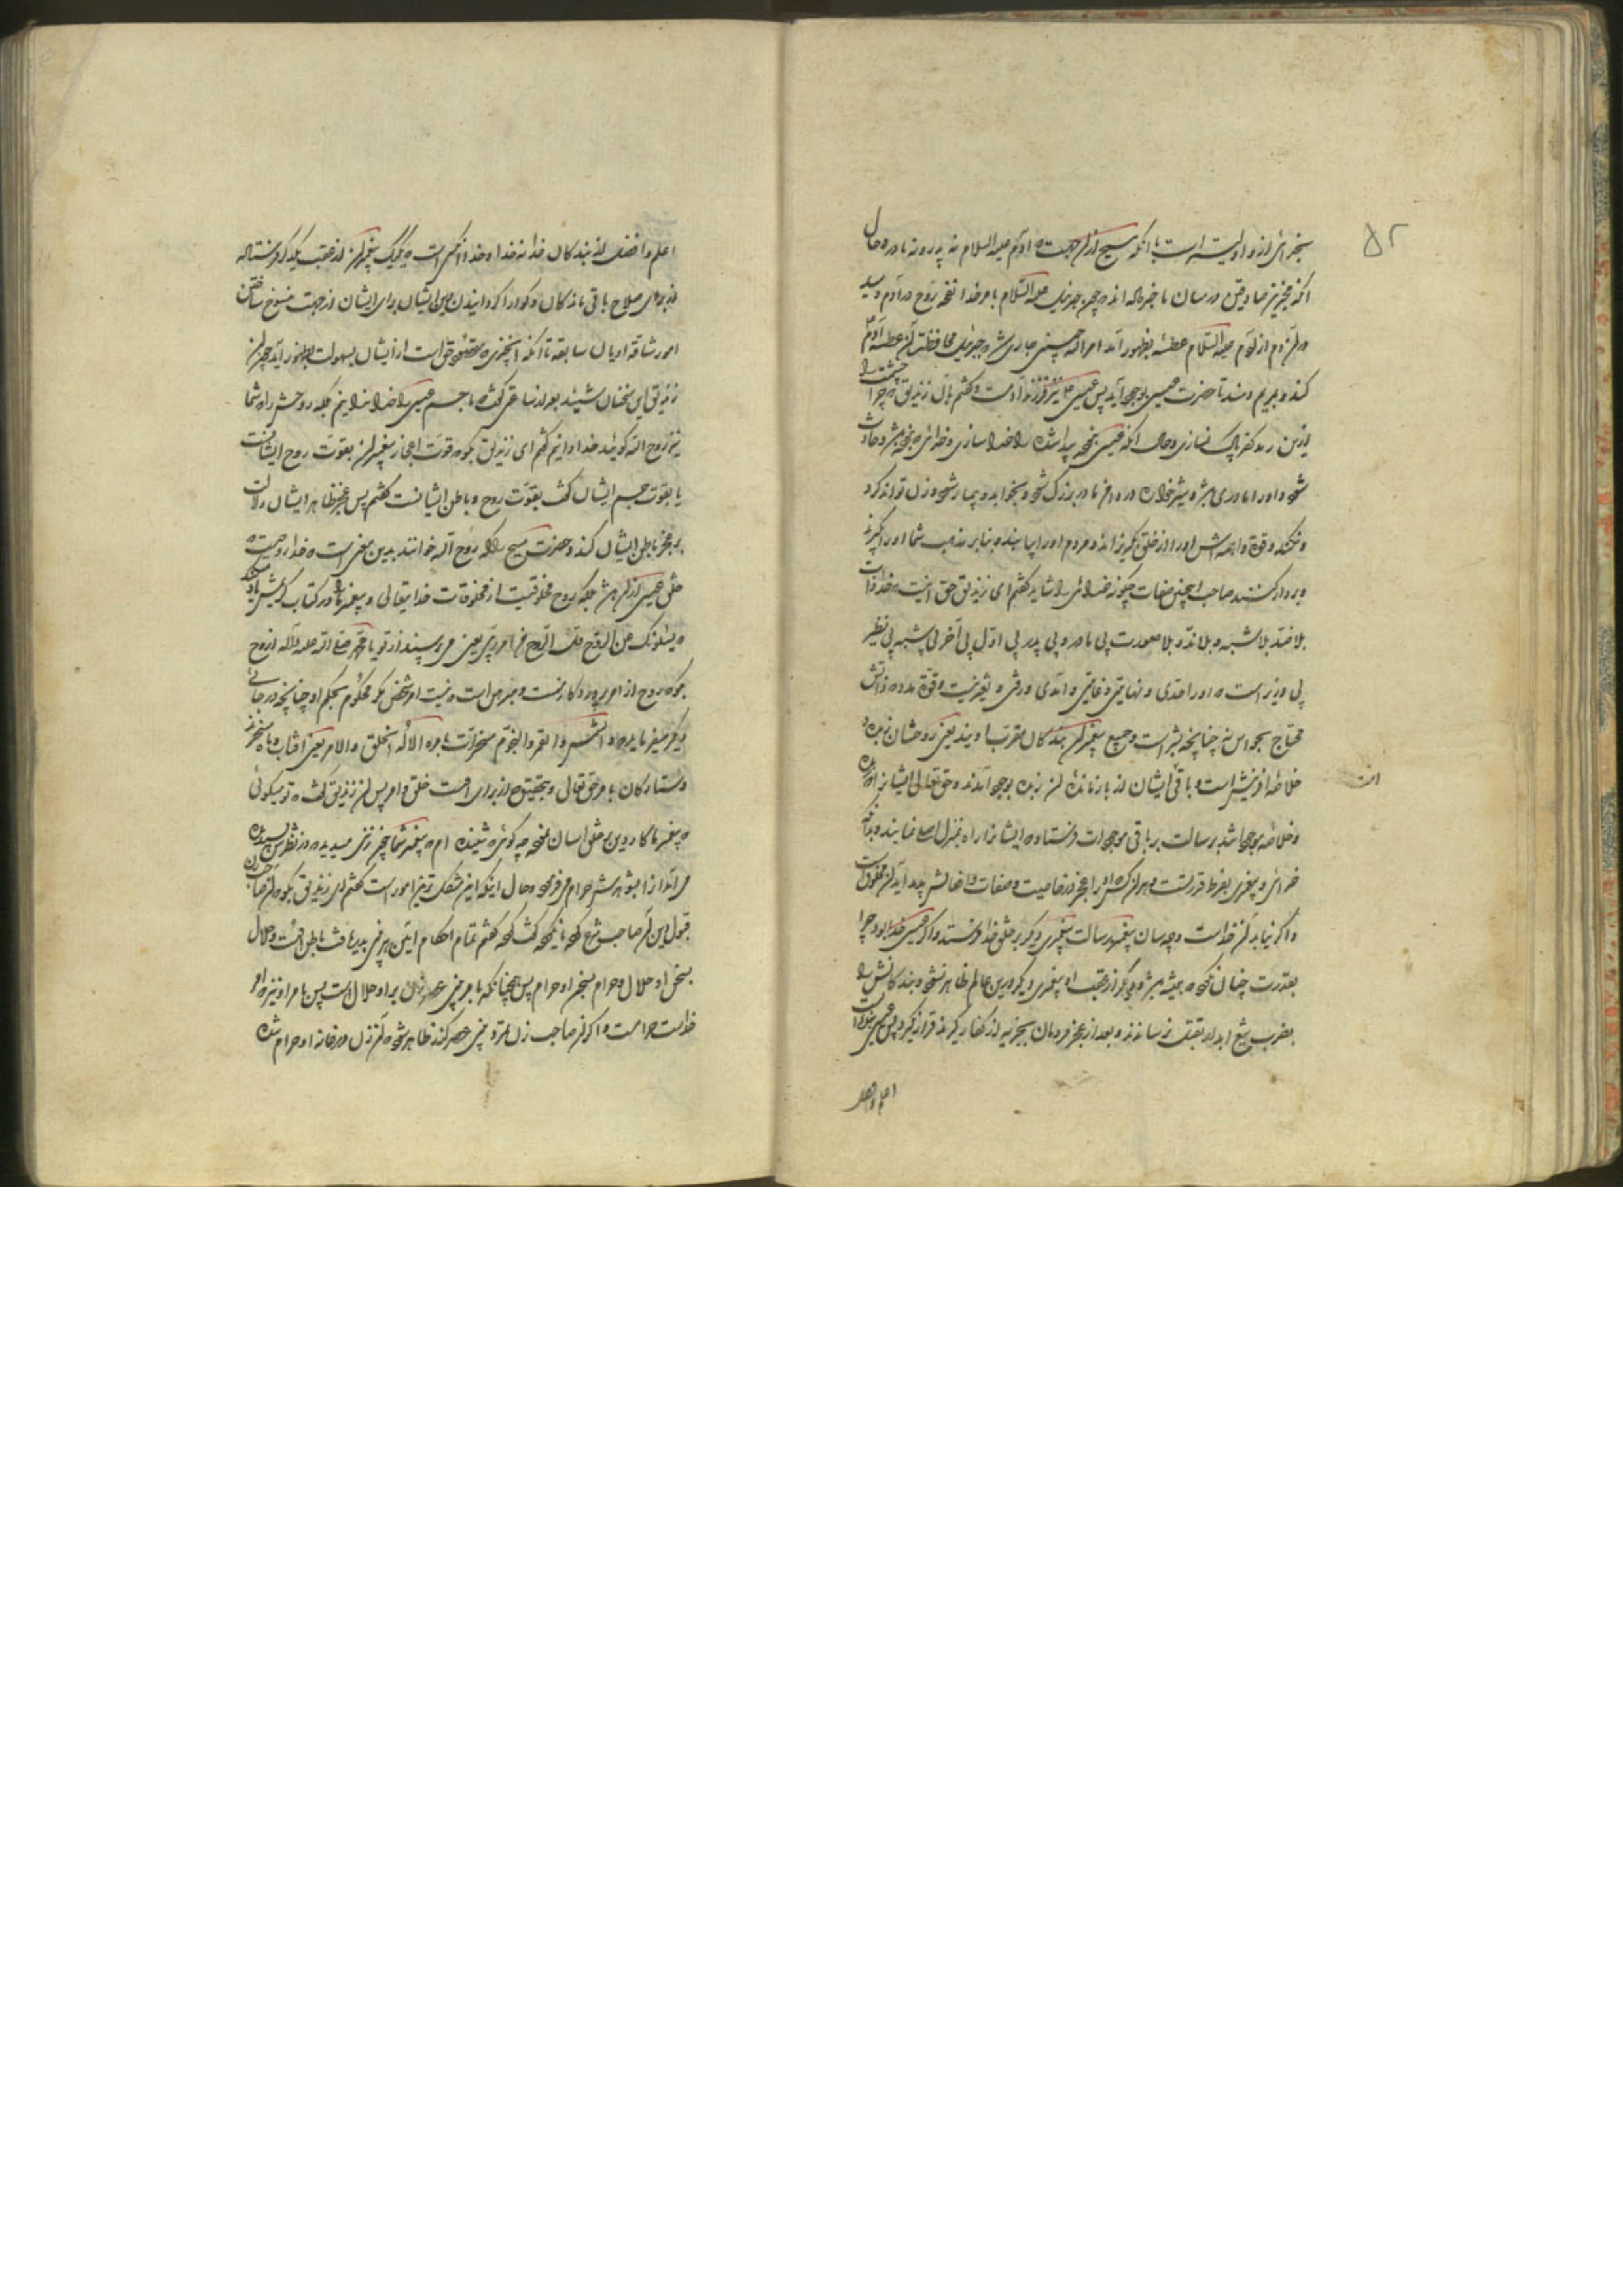 ۵۲
بخدائی از و اولیتر است با آنکه مسیح از آن جهت که آدم علیه السلام نه پدر و نه مادر و حال
آنکه مخبرین صادقین در میان ما خبر داده اند که چون جبرئیل علیه السلام بامر خدا نفخه روح در آدم دمید
در آن دم از آدم علیه السلام عطسه بظهور آمد امر الٰه چنین جاری شد که جبرئیل محافظت آن عطسه آدم
کند و بمریم دمد تا حضرت عیسی بوجود آید پس عیسی نیز فرزند آدمست و گفتم بآن زندیق که چرا
ازین رد کفر پاک نسازی و حال آنکه عیسی نبوده پیدا شده را خدا سازی و خدائی که نبوده بشر و حادث
شود و او را مادری بزه و شیر خواره در دامن مادر بزرگ شود و بخوابد و بیمار شود و زن تواند کرد
و نکند و قوة واهمه اش او را از خلق بگریزاند و مردم او را بیابند و بنابر مذهب شما او را بگیرند
و بر دار کشند صاحب اینچنین صفات چگونه خدائی را شاید گفتم ای زندیق حق اینست که خدا ذات
بلا ضد بلا شبه و بلا ند و بلا صورت بی مادر و بی پدر بی اول بی آخر بی شبه بی نظیر
بی وزیر است که او را حدی و نهایتی و غایتی و امدی و رقی و تغیر نیست و قوة مدده ذاتش
محتاج بحواس نه چنانچه بشر است و جمیع پیغمبران بندگان مقرب اویند یعنی روحشان زبده و
خلاصه آفرینش است و باقی ایشان از بازمانده آن زبده بوجود آمدند و حق تعالی ایشانرا که زبده
و خلاصه موجودات اند برسالت بر باقی موجودات فرستاده که ایشانرا راه بمنزل اصلی نمایند و بدانکه
خدائی و پیغمبری بفرط قدرتست و هر آن کس که او را عجز در خاصیت و صفات و افعالش پدید آید آن مخلوقست
و اگر نیابد آن خداست و چه سان پیغمبر رسالت پیغمبری دیگر بر خلق خدا فرستد و اگر عیسی خدا بود چرا
بقدرت چنان نکرد که همیشه بشر و دیگر از عقب او پیغمبری دیگر درین عالم ظاهر نشود و بندگانش را
بضرب تیغ آبدار بقتل نرسانند و بعد از عجز مردمان بجزیه از کفار گیرند قرار نگیرد پس عیسی بنده است
است
اعلم و افضل
اعلم و افضل از بندگان خدا نه خدا و خدا آن کس است که یک یک پیغمبران از عقب یکدیگر فرستاده
از برای صلاح باقی ماندگان و گوارا گردانیدن دین ایشان برای ایشان از جهت منسوخ ساختن
امور شاقه ادیان سابقه تا آنکه آنچیزی که مقصود حق است از ایشان بسهولت بظهور آید چون آن
زندیق این سخنان شنید بعد از ساعتی گفت که ما جسم عیسی را خدا ندانیم بلکه روحش را که شما
نیز روح الله گویید خدا دانیم گفتم ای زندیق بگو که قوت اعجاز پیغمبران بقوت روح ایشانست
یا بقوت جسم ایشان گفت بقوت روح و باطن ایشانست گفتم پس عجز ظاهر ایشان دلالت
بر عجز باطن ایشان کند و حضرت مسیح را که روح الله خوانند بدین معنی است که خدا روحیست که
خلق عیسی از آن شد بلکه روح مخلوقیست از مخلوقات خدایتعالی و پیغمبر ما را در کتاب کریمش یاد میکند
که یسئلونک عن الروح قل الروح من امر ربی یعنی می پرسند از تو یا محمد صلی الله علیه و آله از روح
بگو که روح از امر پروردگار منست و مبرهن است که نیست امر شخص مگر محکوم بحکم او چنانچه در جائی
دیگر میفرماید که و الشمس و القمر و النجوم مسخرات بامره الا له الخلق و الامر یعنی آفتاب و ماه مسخرند
و ستارگان بامر حق تعالی و بتحقیق که از برای اوست خلق و امر پس آن زندیق گفت که تو میگوئی
که پیغمبر ما کار دین بر خلق آسان نموده چه گوئی که شنیده ام که پیغمبر شما چون زنی میدید که در نظرش پسندیده
می آمد آن زن بر شوهرش حرام میفرمود و حال اینکه این مشکل ترین امور است گفتم ای زندیق بگو که آن صاحب زن
قبول دین آن صاحب شرع کرده یا نکرده گفت کرده گفتم تمام احکام این پیغمبر بدیهاً باطن اوست و حلال
بسخن او حلال و حرام بسخن او حرام پس همچنانکه بامر نبی عصر زنان بر او حلال است پس بامر او نیز که امر
خداست حرامست و اگر آن صاحب زن تمرد نبی عصر کند ظاهر شود که آن زن در خانه او حرام شده